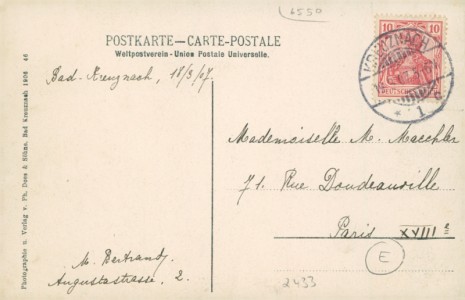 6550
POSTKARTE—CARTE-POSTALE
Weltpostverein - Union Postale Universelle.
Bad-Kreuznach, 18/3/07.
10 10
KREUZNACH
DEUTSCHES
* 1 c
Mademoiselle M. Maechler
71. Rue Doudeauville
Paris XVIII e
E
M. Bertrand,
Augustastrasse, 2.
2433
Photographie u. Verlag v. Ph. Dees & Böhm, Bad Kreuznach 1906 46